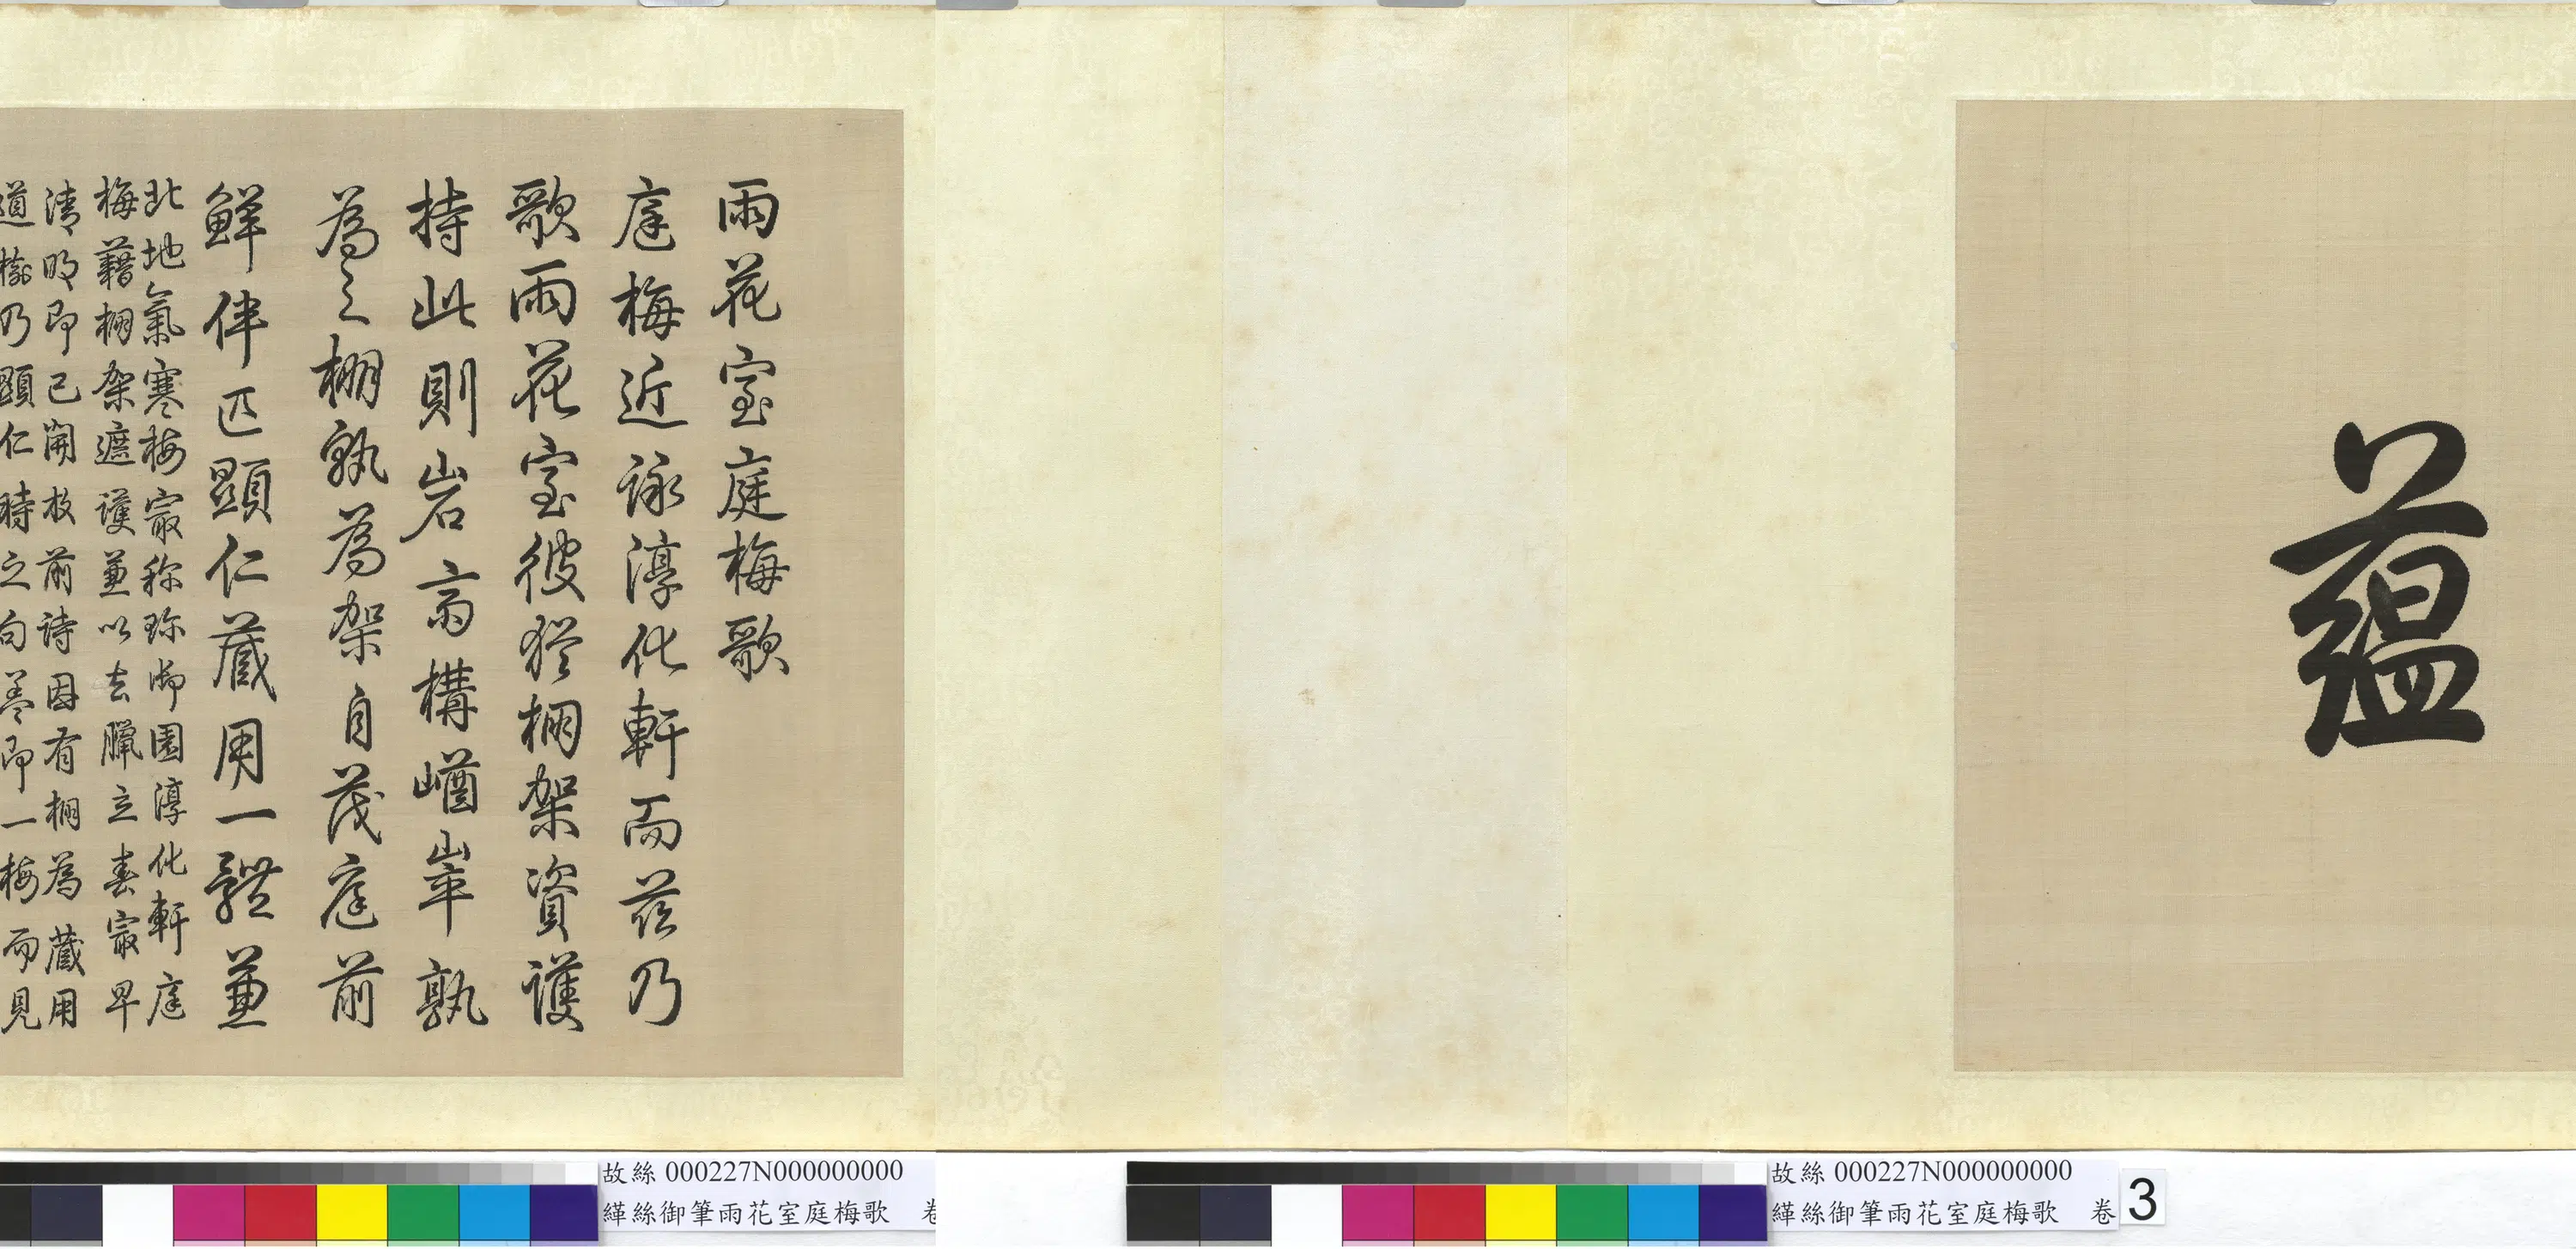 蘊
雨花室庭梅歌
庭梅近詠淳化軒而茲乃
歌雨花室彼猶棚架資護
持此則岩齋構崷崒孰
為之棚孰為架自茂庭前
鮮伴匹顯仁藏用一體兼
北地氣寒梅冣稱珍御園淳化軒庭
梅藉棚架遮護兼以去臘立春冣早
清明即已開放前詩因有棚為藏用
道機乃顯仁時之句葢即一梅而見
故絲 000227N000000000
緙絲御筆雨花室庭梅歌 卷
故絲 000227N000000000
緙絲御筆雨花室庭梅歌 卷
3